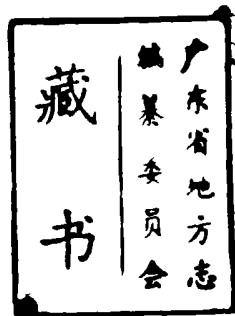 广东省地方志
编纂委员会
藏书